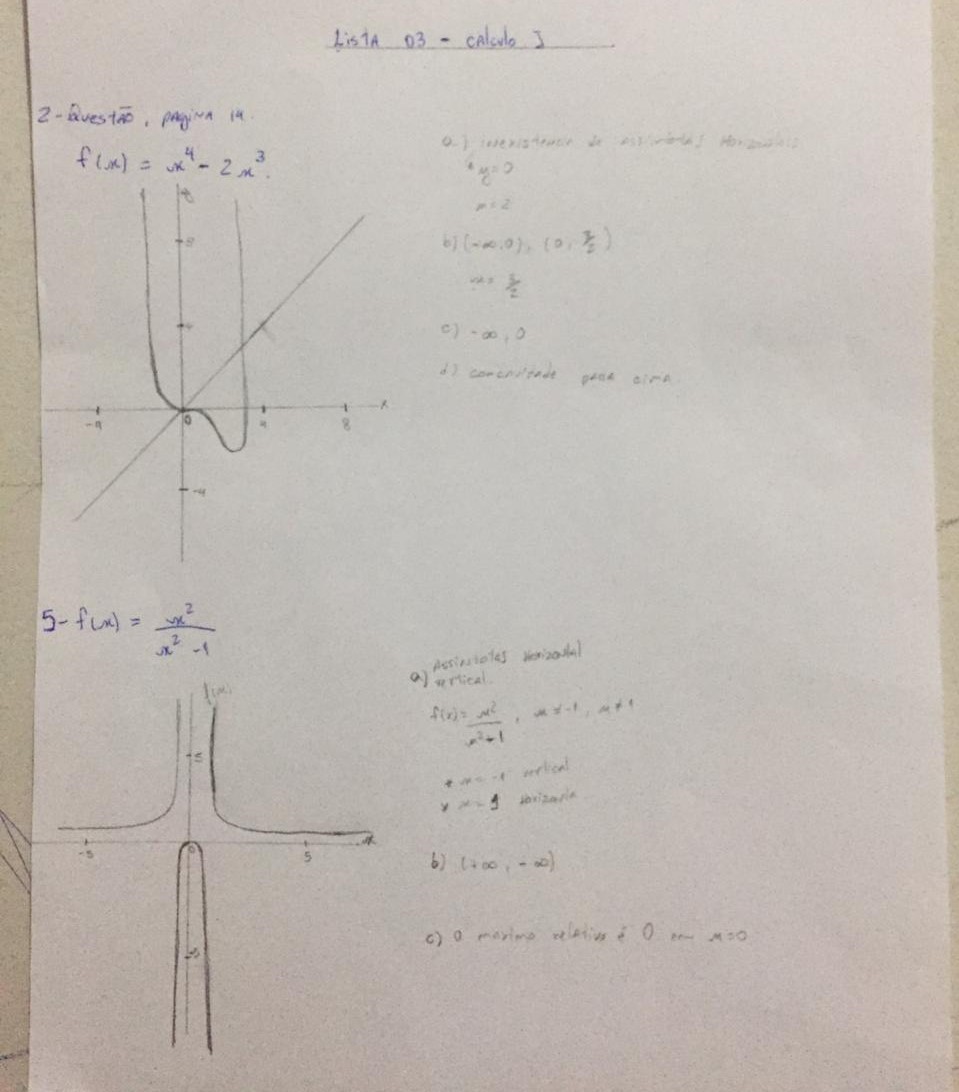 LISTA 03 - CALCULO I
2- QUESTÃO, PAGINA 14.
f(x) = x⁴ - 2x³.
a) inexistencia de assintotas Horizontais
* y=0
x=2
b) (-∞,0), (0, 3/2)
x= 3/2
c) -∞, 0
d) concavidade para cima
8
4
-4
0
4
8
x
-4
5- f(x) = x² / x² - 1
a) Assintotas Horizontal
vertical.
f(x)= x² / x²-1, x≠-1, x≠1
* x= -1 vertical
* x= 1 Horizontal
b) (+∞, -∞)
c) O maximo relativo é 0 em x=0
f(x)
5
-5
0
5
x
-5